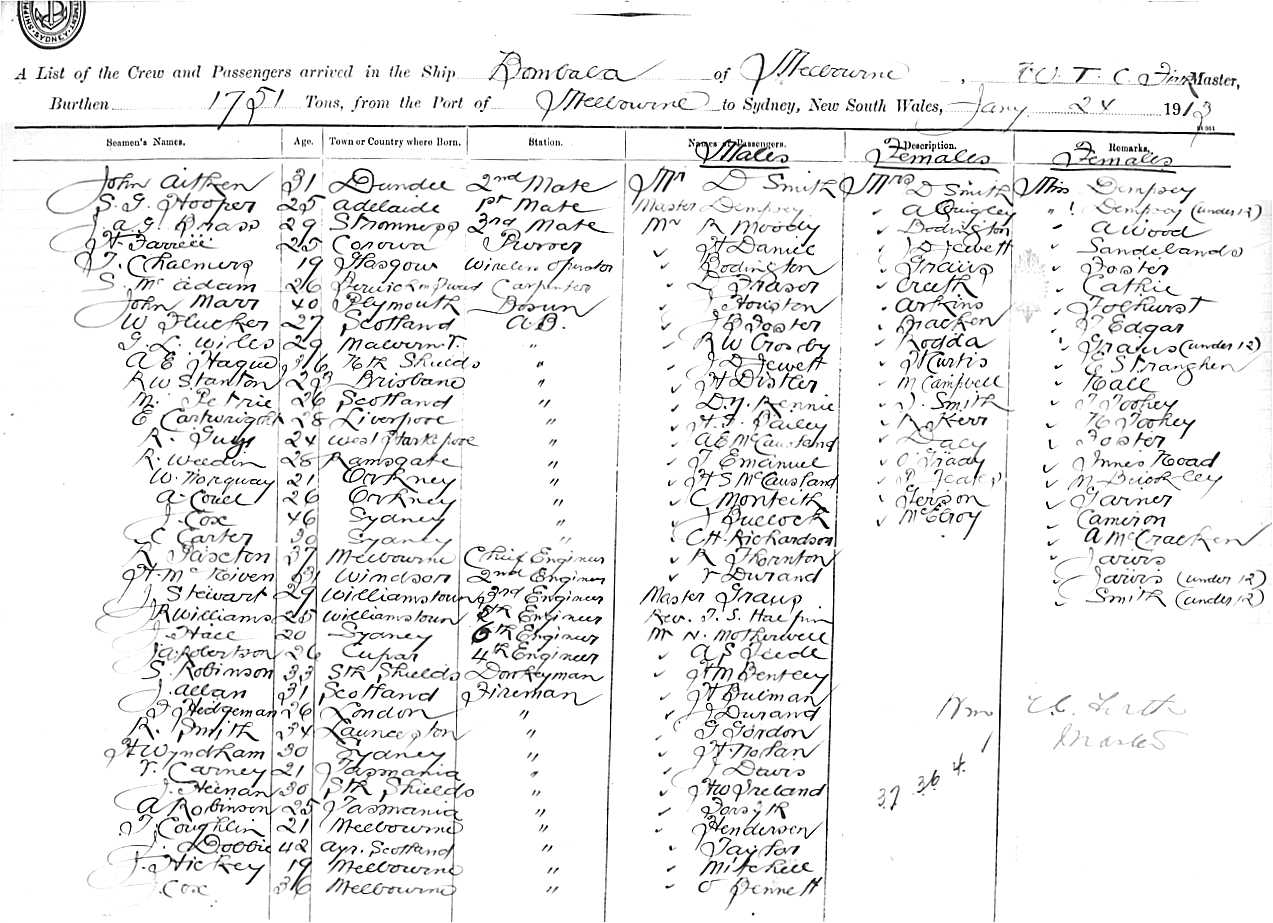 SYDNEY
A List of the Crew and Passengers arrived in the Ship Bombala of Melbourne, W. T. C. Master,
Burthen 1751 Tons, from the Port of Melbourne to Sydney, New South Wales, Jany 24 1913
Seamen's Names. Age. Town or Country where Born. Station. Names of Passengers. Description. Remarks.
Males Females Females
John Aitken 31 Dundee 2nd Mate Mr D Smith Mrs D Smith Miss Dempsey
S. G. Hooper 25 Adelaide 1st Mate Master Dempsey " A Quigley " Dempsey (under 12)
J. A. G. Brass 29 Stromness 3rd Mate Mr R Moody " Bodington A Wood
H. Farrell 25 Corowa Purser " H Daniel " J D Jewett " Sandelands
J. T. Chalmers 19 Glasgow Wireless Operator " Bodington " Graus " Foster
S. Mc Adam 26 Carpenter " D Fraser " Creeth " Cathie
John Marr 40 Plymouth Bosun " J Houston " Arkins " Tolhurst
W Flucker 27 Scotland A.B. " J B Foster " Bracken " T Edgar
G. L. Wiles 29 Malvern T. " " R W Crosby " Rodda " Graus (under 12)
A E Hague 36 Nth Shields " " J D Jewett " H Curtis " E Straughen
R W Stanton 23 Brisbane " " H Distler " M Campbell " Hall
M. Petrie 26 Scotland " " D. Y. Rennie " J. Smith " T Tookey
E Cartwright 28 Liverpool " " H. G. Bailey " R Kerr " H Tookey
R. Guy 24 West Hartlepool " " A E McCausland " Daly " Foster
R. Weedin 28 Ramsgate " " T Emanuel " O'Grady " Innes Noad
W. Norquay 21 Orkney " " H S McCausland " " M Buckley
A. Couel 26 Orkney " " C Monteith " Gerson " Garner
J. Cox 46 Sydney " " J Bullock " McElroy " Cameron
C Carter 30 Sydney " " C H Richardson " A McCracken
R. Paxton 37 Melbourne Chief Engineer " R Thornton " Jarvis
H. Mc Niven 31 Windsor 2nd Engineer " V Durand " Jarvis (under 12)
J Stewart 29 Williamstown 3rd Engineer Master Graus " Smith (under 12)
J R Williams 25 Williamstown 5th Engineer Rev. T. S. Halpin
J. Hall 20 Sydney 6th Engineer Mr N. Motherwell
J. A. Robertson 26 Cupar 4th Engineer " A S
S. Robinson 33 Sth Shields Donkeyman " H M Bentley
J. Allan 31 Scotland Fireman " H Bulman
J Hedgeman 26 London " " J Durand
R. Smith 34 Launceston " " G Gordon
H Wyndham 30 Sydney " " H Nolan
V. Carney 21 Tasmania " " J Davis
J. Heenan 30 Sth Shields " " H W Ireland 37 36 4 1
A Robinson 25 Tasmania " " Forsyth
J. Coughlin 21 Melbourne " " Henderson
J. Dobbie 42 Ayr. Scotland " " Taylor
J. Hickey 19 Melbourne " " Mitchell
J. Cox 36 Melbourne " " O Bennett